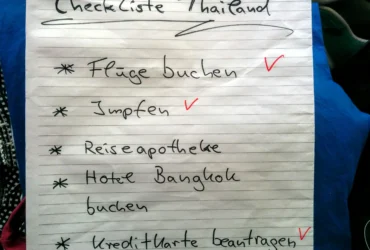 Checkliste Thailand
* Flüge buchen ✓
* Impfen ✓
* Reiseapotheke
* Hotel Bangkok
buchen
* Kreditkarte beantragen ✓